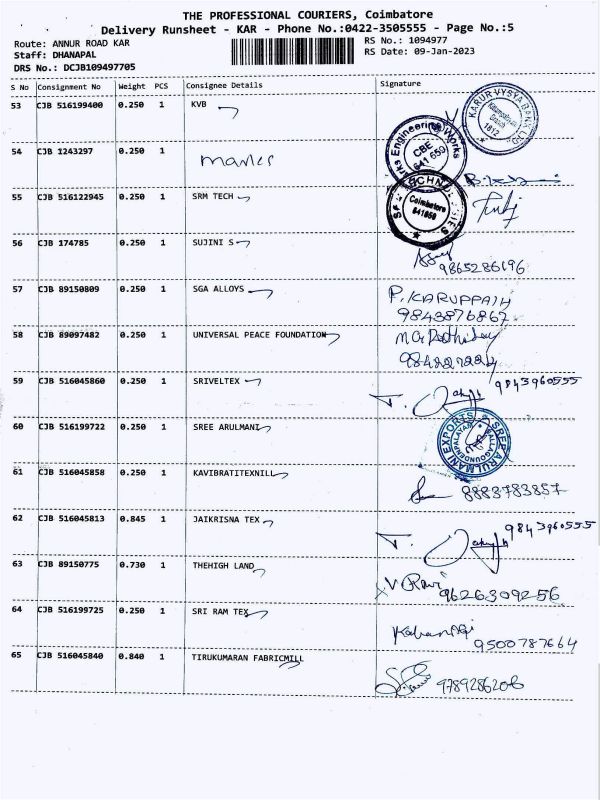 THE PROFESSIONAL COURIERS, Coimbatore
Delivery Runsheet - KAR - Phone No.:0422-3505555 - Page No.:5
Route: ANNUR ROAD KAR RS No.: 1094977
Staff: DHANAPAL RS Date: 09-Jan-2023
DRS No.: DCJB109497705
S No Consignment No Weight PCS Consignee Details Signature
53 CJB 516199400 0.250 1 KVB
KARUR VYSYA BANK LTD
1812
Engineering Works
CBE
641 650
54 CJB 1243297 0.250 1
55 CJB 516122945 0.250 1 SRM TECH
Coimbatore
641650
56 CJB 174785 0.250 1 SUJINI S
9865286196
57 CJB 89150809 0.250 1 SGA ALLOYS P. KARUPPAIH
9843876867
58 CJB 89097482 0.250 1 UNIVERSAL PEACE FOUNDATION
59 CJB 516045860 0.250 1 SRIVELTEX 9843960555
60 CJB 516199722 0.250 1 SREE ARULMANI
SREE ARULMANI EXPORTS
61 CJB 516045858 0.250 1 KAVIBRATITEXNILL 8883783857
62 CJB 516045813 0.845 1 JAIKRISNA TEX 9843960555
63 CJB 89150775 0.730 1 THEHIGH LAND V. Ravi 9626309256
64 CJB 516199725 0.250 1 SRI RAM TEX 9500787664
65 CJB 516045840 0.840 1 TIRUKUMARAN FABRICMILL 9789286206